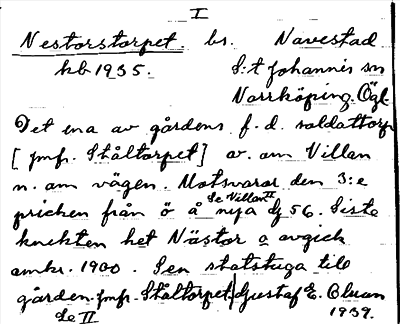 I
Nestorstorpet. bs. Navestad
kb 1935. S:t Johannis sn
Norrköping. Ögl.
Det ena av gårdens f.d. soldattorp
[jmfr. Ståltorpet] v. om Villan
n. om vägen. Motsvarar den 3:e
pricken från ö å nya dg 56. Siste
Se Villan II
knekten het Nästor o avgick
omkr. 1900. Sen statstuga till
gården. jmfr. Ståltorpet / Gustaf E. Olsson
Se II 1939.